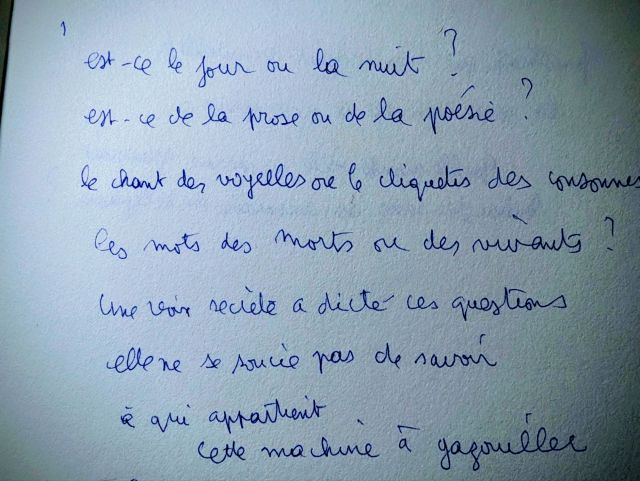 1
est-ce le jour ou la nuit ?
est-ce de la prose ou de la poésie ?
le chant des voyelles ou le cliquetis des consonnes
les mots des morts ou des vivants ?
une voix secrète a dicté ces questions
elle ne se soucie pas de savoir
à qui appartient
cette machine à gazouiller